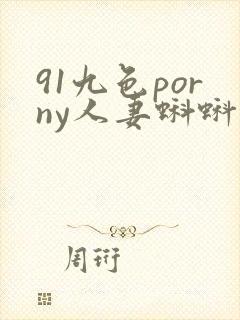 91九色por
ny人妻蝌蝌
周珩